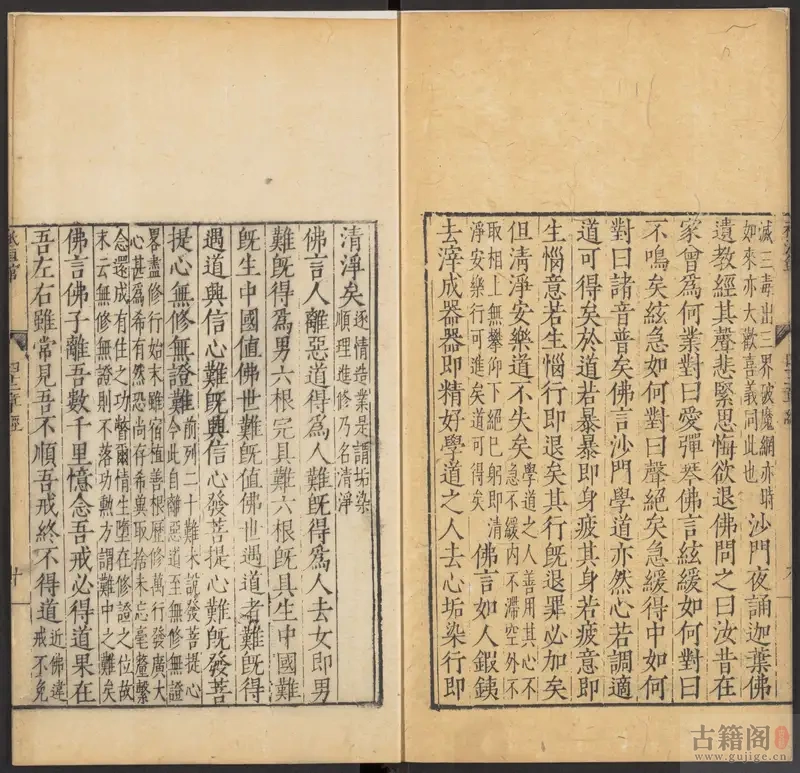 滅三毒出三界破魔網亦時
如來亦大歡喜義同此也
沙門夜誦迦葉佛
遺教經其聲悲緊思悔欲退佛問之曰汝昔在
家曾為何業對曰愛彈琴佛言絃緩如何對曰
不鳴矣絃急如何對曰聲絕矣急緩得中如何
對曰諸音普矣佛言沙門學道亦然心若調適
道可得矣於道若暴暴即身疲其身若疲意即
生惱意若生惱行即退矣其行既退罪必加矣
但清淨安樂道不失矣
學道之人善用其心不
急不緩內不滯空外不
取相上無攀仰下絕已躬即清
淨安樂行可進矣道可得矣
佛言如人鍜鐵
去滓成器器即精好學道之人去心垢染行即
清淨矣
逐情造業是謂垢染
順理進修乃名清淨
佛言人離惡道得為人難既得為人去女即男
難既得為男六根完具難六根既具生中國難
既生中國值佛世難既值佛世遇道者難既得
遇道興信心難既興信心發菩提心難既發菩
提心無修無證難
前列二十難未說發菩提心
今此自離惡道至無修無證
畧盡修行始末雖宿植善根歷修萬行發廣大
心甚為希有然恐尚存希兾取捨未忘毫釐繫
念還成有住之功瞥爾情生墮在修證之位故
末云無修無證則不落功勲方謂難中之難矣
佛言佛子離吾數千里憶念吾戒必得道果在
吾左右雖常見吾不順吾戒終不得道
近佛違
戒不免
四十二章經
十
古籍阁
www.gujige.cn